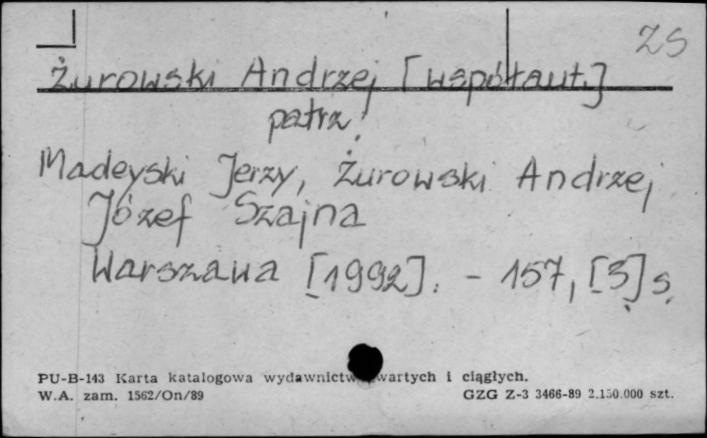 ZS
Żurowski Andrzej [współaut.]
patrz:
Madeyski Jerzy, Żurowski Andrzej
Józef Szajna
Warszawa [1992]. - 157, [3] s.
PU-B-143 Karta katalogowa wydawnictw zwartych i ciągłych.
W.A. zam. 1562/On/89 GZG Z-3 3466-89 2.150.000 szt.